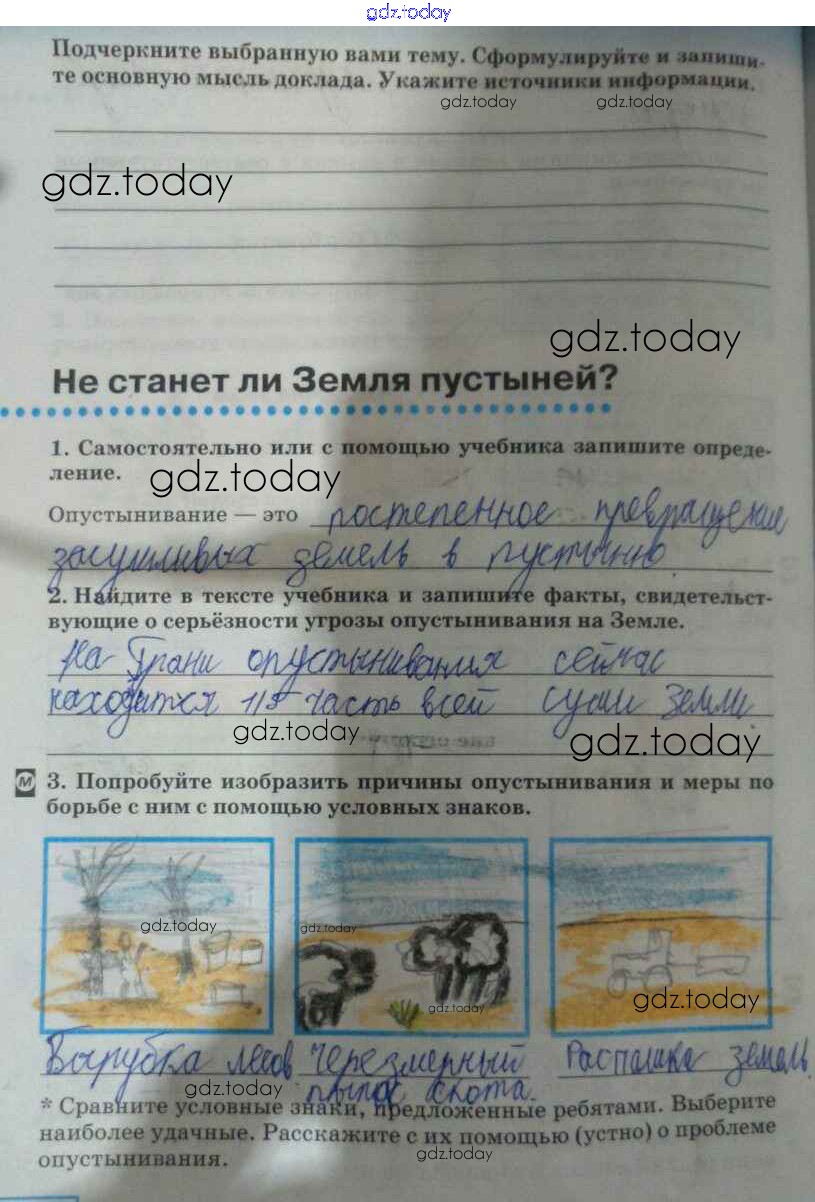 gdz.today
Подчеркните выбранную вами тему. Сформулируйте и запиши-
те основную мысль доклада. Укажите источники информации.
gdz.today gdz.today
gdz.today
gdz.today
Не станет ли Земля пустыней?
1. Самостоятельно или с помощью учебника запишите опреде-
ление.
gdz.today
Опустынивание — это постепенное превращение
засушливых земель в пустынню
2. Найдите в тексте учебника и запишите факты, свидетельст-
вующие о серьёзности угрозы опустынивания на Земле.
На грани опустынивания сейчас
находится 1/5 часть всей суши Земли
gdz.today gdz.today
М 3. Попробуйте изобразить причины опустынивания и меры по
борьбе с ним с помощью условных знаков.
gdz.today gdz.today
gdz.today gdz.today
Вырубка лесов Черезмерный Распашка земель
gdz.today скота.
* Сравните условные знаки, предложенные ребятами. Выберите
наиболее удачные. Расскажите с их помощью (устно) о проблеме
опустынивания.
gdz.today